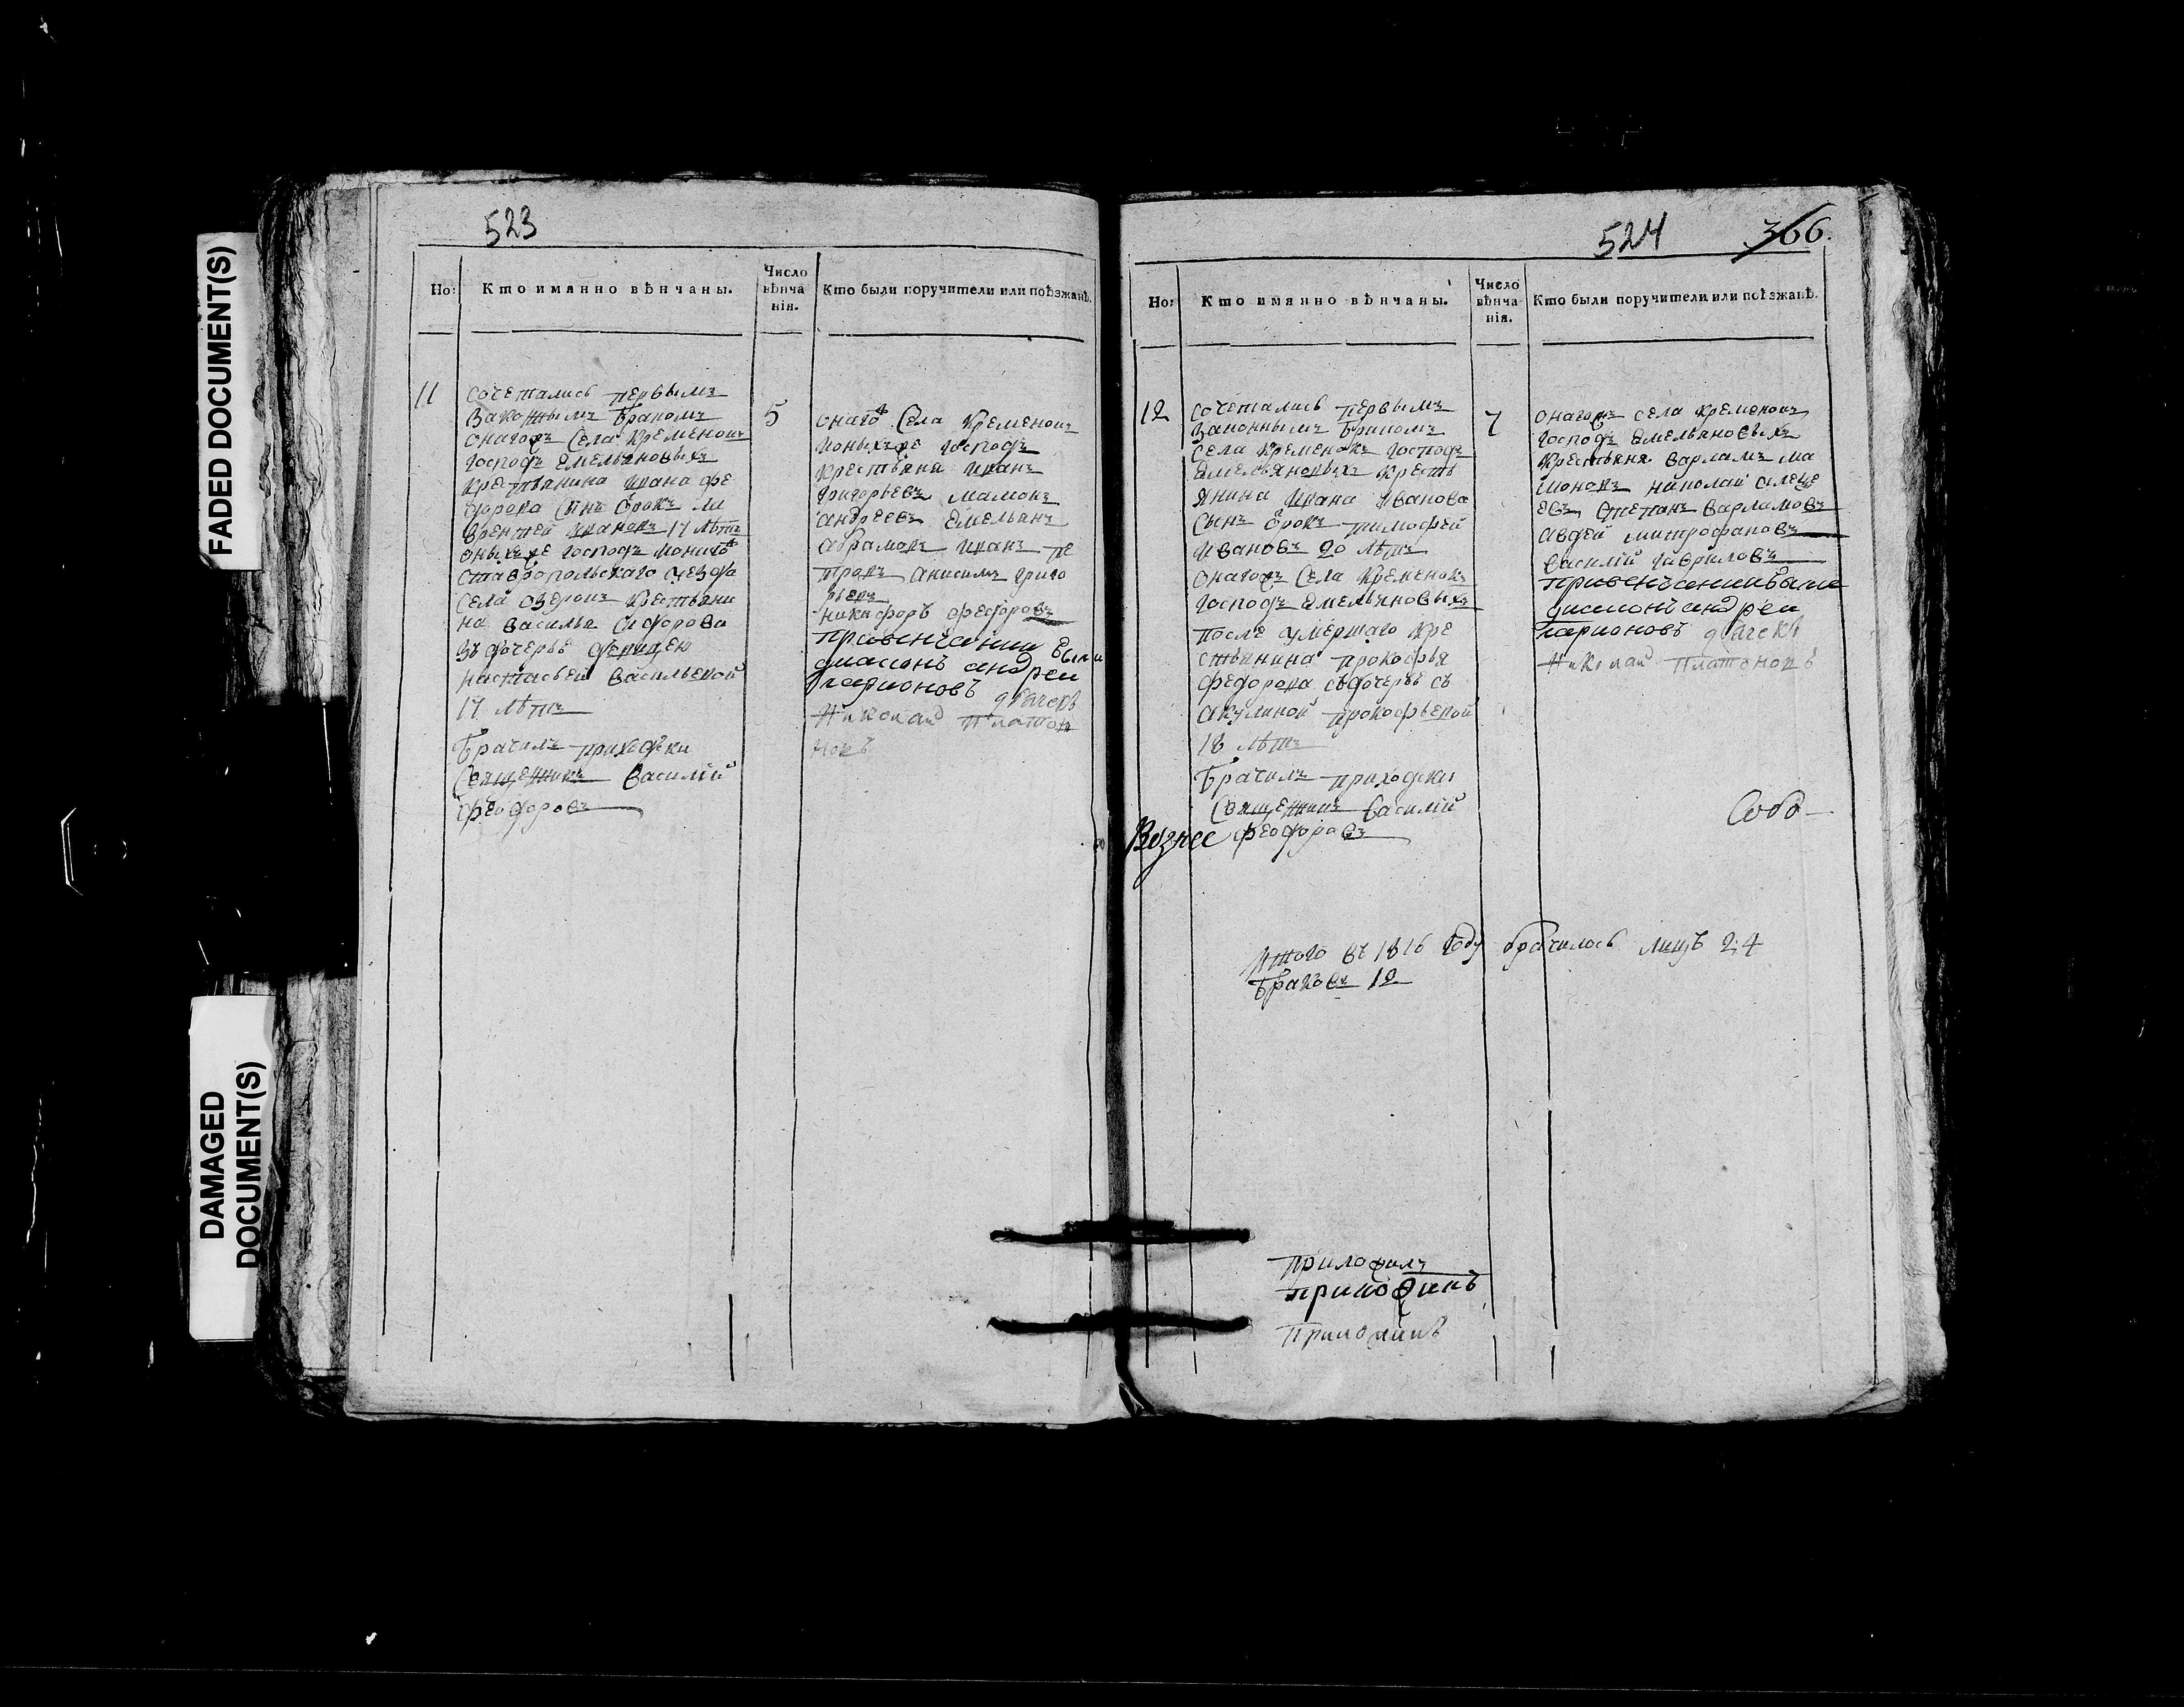 FADED DOCUMENT(S)
DAMAGED
DOCUMENT(S)
523
Но:
Кто имянно вѣнчаны.
Число
вѣнча
нія.
Кто были поручители или поѣзжанѣ.
11
сочетались первымъ
Законнымъ Бракомъ
онагожъ Села Кременокъ
Господъ Емельяновыхъ
крестьянина Ивана Фе
дорова Сынъ отрокъ Ла
врентей Ивановъ 17 лѣтъ
оныхже Господъ
Ставропольскаго уезда
Села озерокъ Крестьяни
на Василья Сидорова
зъ дочерью девицею
настасьей Васильевой
17 лѣтъ
Брачилъ приходски
Священникъ Василій
Феодоровъ
5
онаго Села Кременокъ
Ионыхже Господъ
крестьяня Иванъ
Григорьевъ Мамонъ
андреевъ Емельянъ
абрамовъ Иванъ пе
тровъ Анисимъ григо
рьевъ
никифоръ федоровъ
привенчании были
диаконъ андреи
ларионовъ дьячекъ
Николай Платон
новъ
524
366.
Но:
Кто имянно вѣнчаны.
Число
вѣнча
нія.
Кто были поручители или поѣзжанѣ.
12
сочетались первымъ
Законнымъ Бракомъ
Села Кременокъ Господъ
Емельяновыхъ Кресть
янина Ивана Иванова
Сынъ отрокъ тимофей
Ивановъ 20 лѣтъ
онагожъ Села Кременокъ
Господъ Емельяновыхъ
после умершаго Кре
стьянина прокофья
федорова съдочерью съ
акулиной прокофьевой
18 лѣтъ
Брачилъ приходски
Священникъ Василій
Феодоровъ
Вознес
7
онагожъ села Кременокъ
Господъ Емельяновыхъ
Крестьяня Варламъ ма
моновъ николай алеѯе
евъ Степанъ Варламовъ
авдей митрофановъ
Василій Гавриловъ
привенчании были
диаконъ андреи
ларионовъ дьячекъ
Николай Платоновъ
Собо-
Итого въ 1816 Году брачилось лицъ 24
Браковъ 12
приложилъ
приложилъ
приложилъ